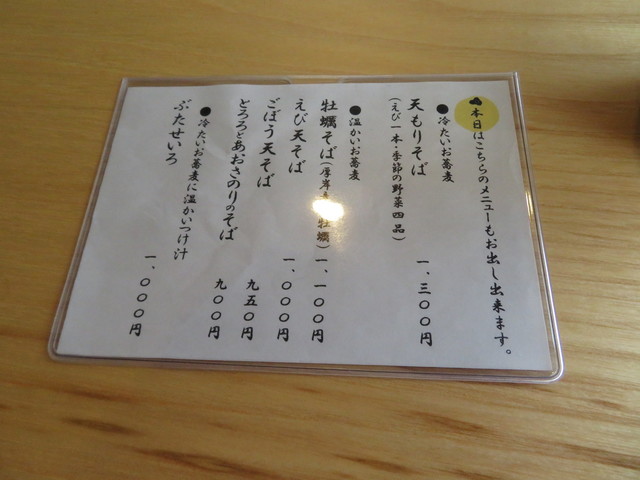 本日はこちらのメニューもお出し出来ます。
●冷たいお蕎麦
天もりそば 一、三〇〇円
(えび一本・季節の野菜四品)
●温かいお蕎麦
牡蠣そば(厚岸 牡蠣) 一、一〇〇円
えび天そば 一、〇〇〇円
ごぼう天そば 九五〇円
とろろとあおさのりのそば 九〇〇円
●冷たいお蕎麦に温かいつけ汁
ぶたせいろ 一、〇〇〇円